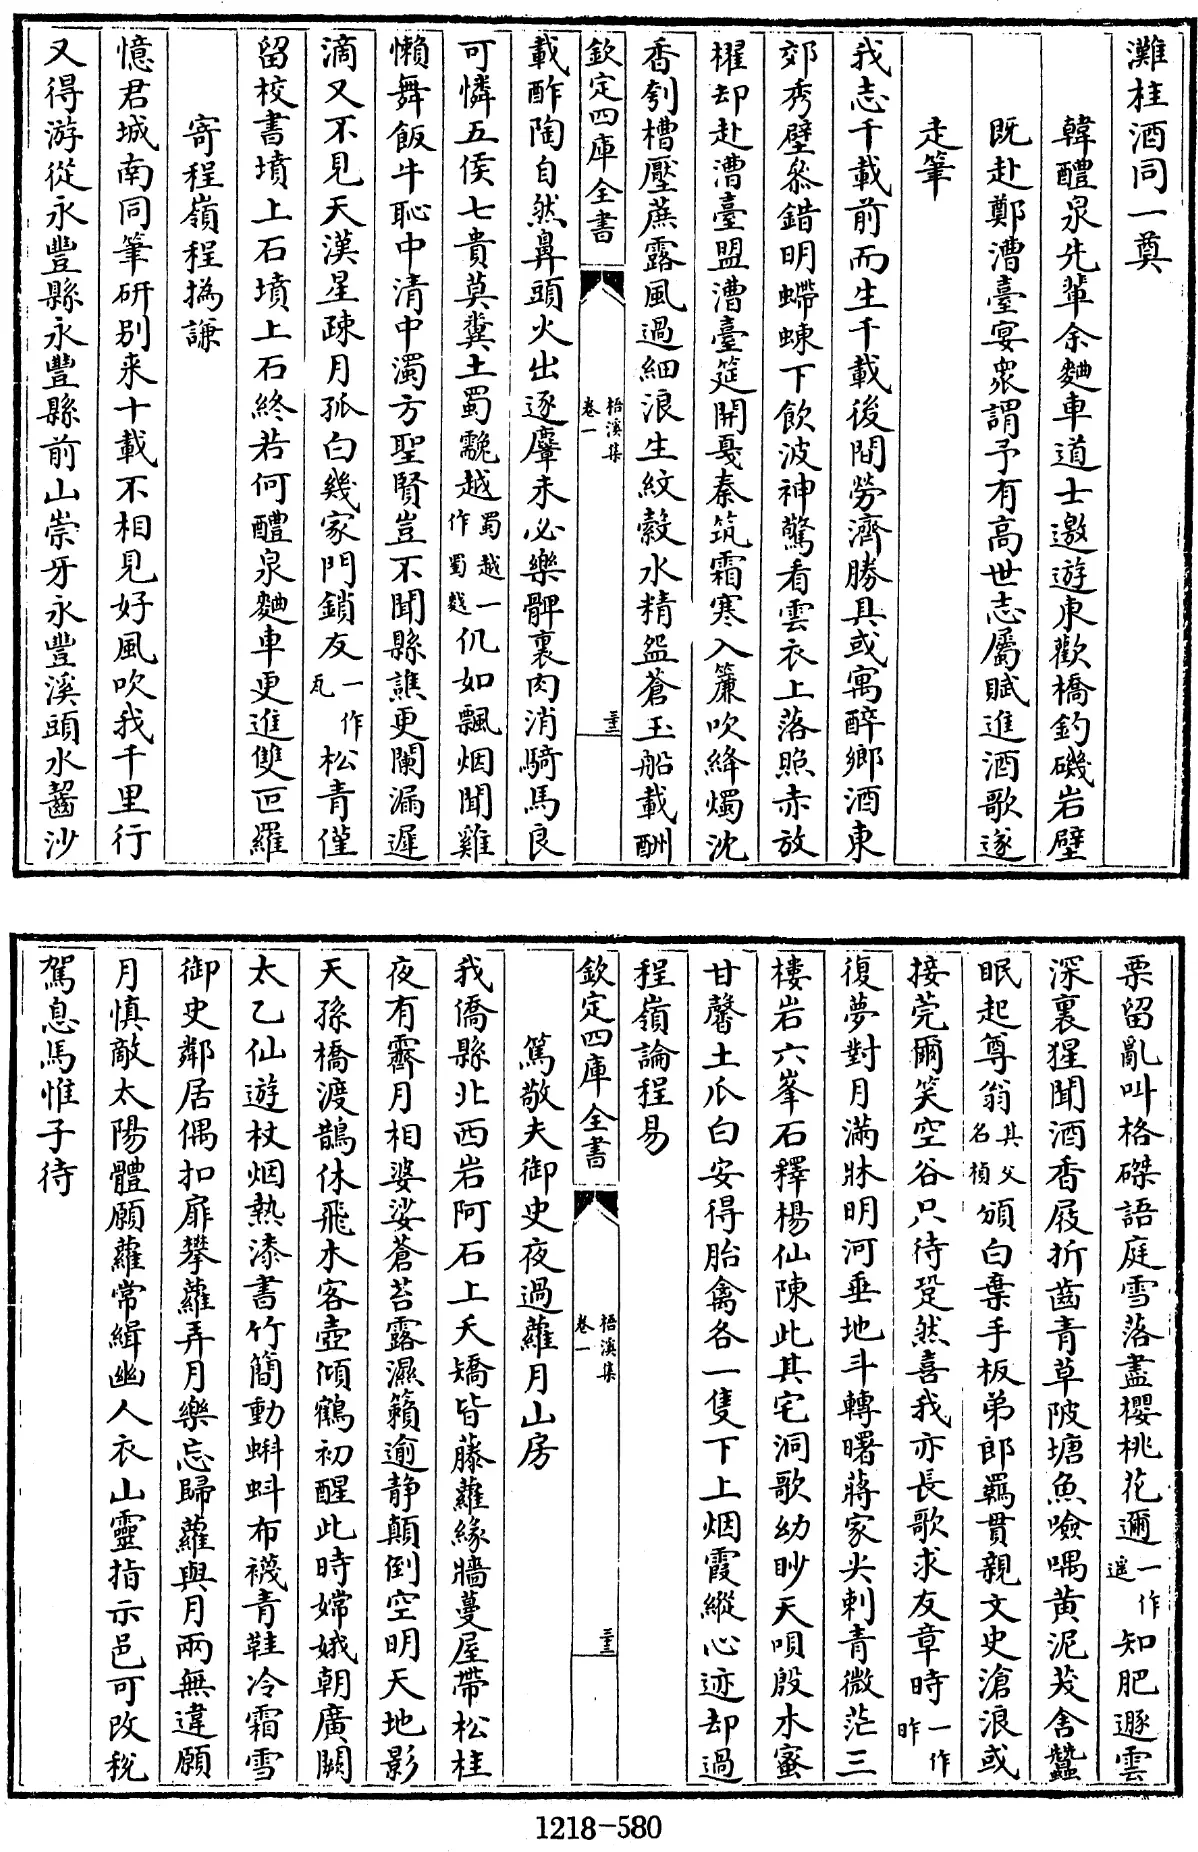 灘桂酒同一奠
韓醴泉先輩余麯車道士邀遊東歡橋釣磯岩壁
既赴鄭漕臺宴衆謂予有高世志屬賦進酒歌遂
走筆
我志千載前而生千載後閒勞濟勝具或寓醉鄉酒東
郊秀壁叅錯明螮蝀下飲波神驚看雲衣上落照赤放
櫂却赴漕臺盟漕臺筵開戞秦筑霜寒入簾吹絳燭沈
香刳槽壓蔗露風過細浪生紋縠水精盌蒼玉船載酬
欽定四庫全書
梧溪集
卷一
三十三
載酢陶自然鼻頭火出逐麞未必樂髀裏肉消騎馬良
可憐五侯七貴莫糞土蜀䨲越蜀越一作蜀䟠仉如飄烟聞雞
懶舞飯牛恥中清中濁方聖賢豈不聞縣譙更闌漏遲
滴又不見天漢星疎月孤白幾家門鎖友一作瓦松青僅
留校書墳上石墳上石終若何醴泉麯車更進雙叵羅
寄程嶺程撝謙
憶君城南同筆研别来十載不相見好風吹我千里行
又得游從永豐縣永豐縣前山崇牙永豐溪頭水齧沙
栗留亂叫格磔語庭雪落盡櫻桃花邇一作遥知肥遯雲
深裏猩聞酒香屐折齒青草陂塘魚噞喁黄泥茇舍蠶
眠起尊翁其父名楨頒白棄手板弟郎羈貫親文史滄浪或
接莞爾笑空谷只待跫然喜我亦長歌求友章時一作昨
復夢對月滿牀明河垂地斗轉曙蔣家尖刺青微茫三
樓岩六峯石釋楊仙陳此其宅洞歌幼眇天唄殷木蜜
甘馨土爪白安得胎禽各一隻下上烟霞縱心迹却過
程嶺論程易
欽定四庫全書
梧溪集
卷一
三十三
篤敬夫御史夜過蘿月山房
我僑縣北西岩阿石上夭矯皆藤蘿緣牆蔓屋帶松桂
夜有霽月相婆娑蒼苔露濕籟逾静顛倒空明天地影
天孫橋渡鵲休飛木客壺傾鶴初醒此時嫦娥朝廣闕
太乙仙遊杖烟熱漆書竹簡動蝌蚪布襪青鞋冷霜雪
御史鄰居偶扣扉攀蘿弄月樂忘歸蘿與月兩無違願
月慎敵太陽體願蘿常緝幽人衣山靈指示邑可改稅
駕息馬惟子待
1218-580